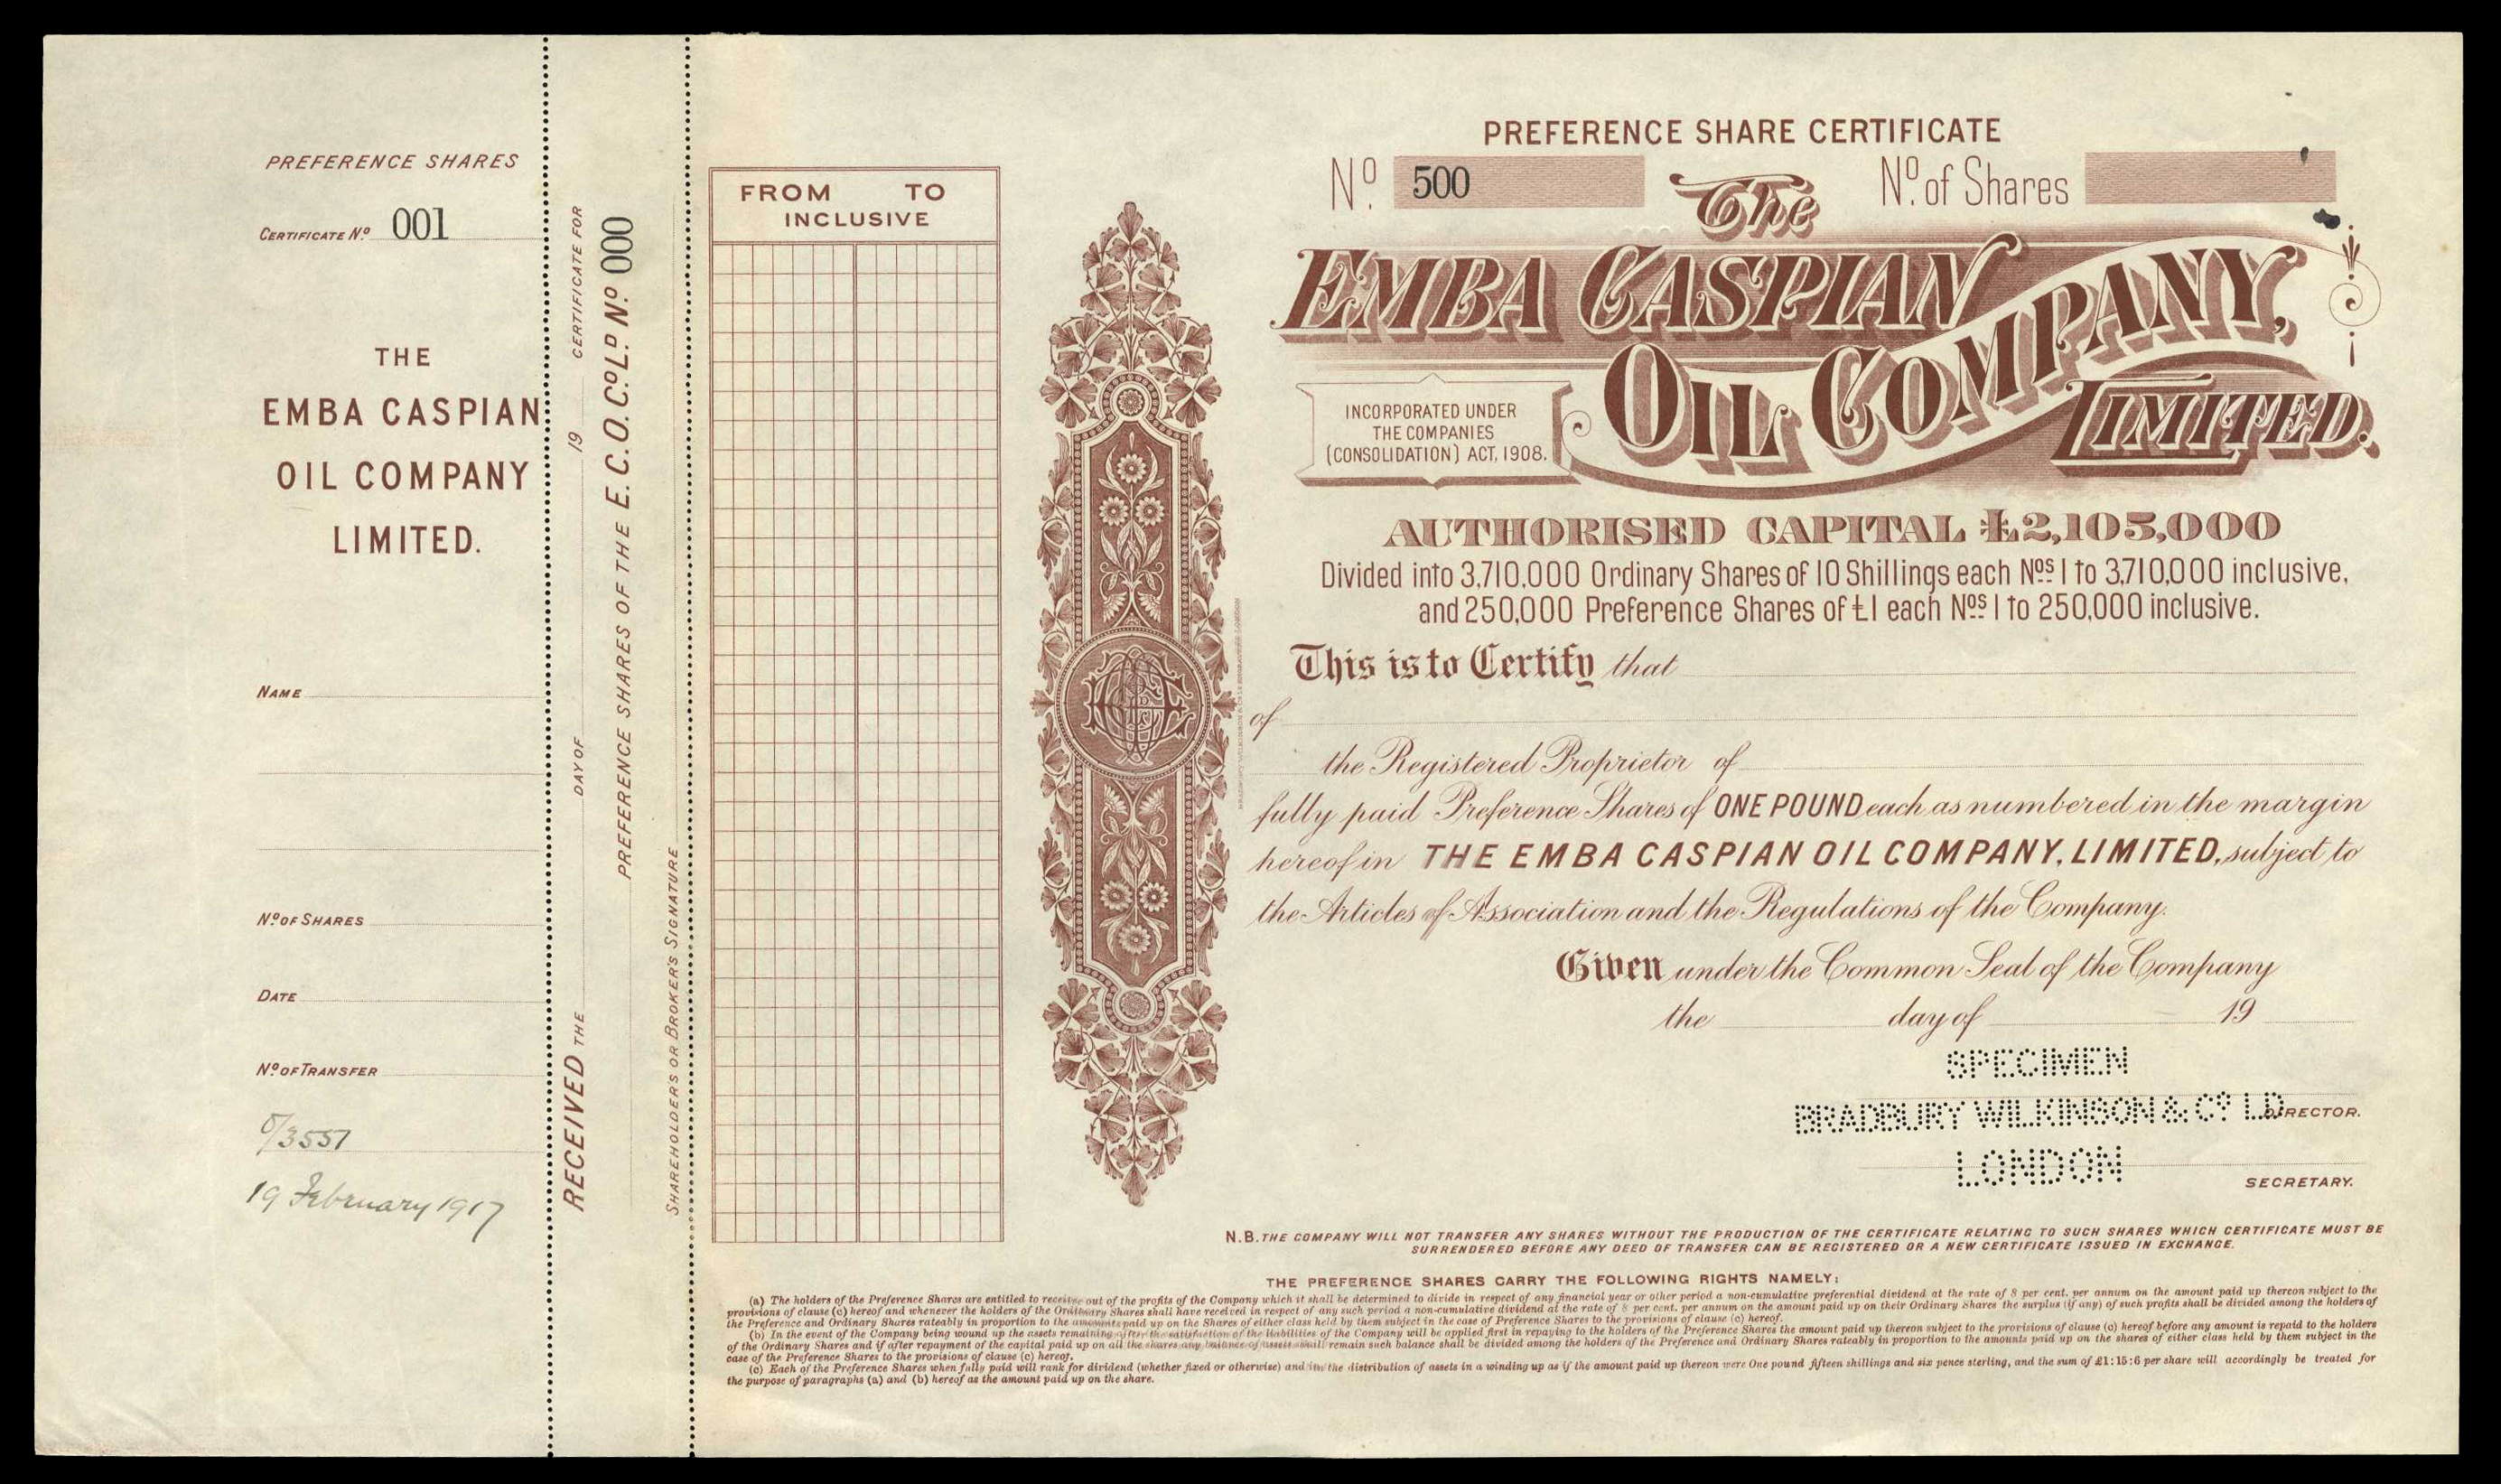 PREFERENCE SHARES
CERTIFICATE No. 001
THE
EMBA CASPIAN
OIL COMPANY
LIMITED.
NAME
No. OF SHARES
DATE
No. OF TRANSFER
O/3557
19 February 1917
RECEIVED THE DAY OF 19 CERTIFICATE FOR
PREFERENCE SHARES OF THE E. C. O. Co. LD. No. 000
SHAREHOLDER'S OR BROKER'S SIGNATURE
FROM TO
INCLUSIVE
PREFERENCE SHARE CERTIFICATE
No. 500 No. of Shares
The
EMBA CASPIAN
OIL COMPANY,
LIMITED.
INCORPORATED UNDER
THE COMPANIES
(CONSOLIDATION) ACT, 1908.
AUTHORISED CAPITAL £2,105,000
Divided into 3,710,000 Ordinary Shares of 10 Shillings each Nos. 1 to 3,710,000 inclusive,
and 250,000 Preference Shares of £1 each Nos. 1 to 250,000 inclusive.
This is to Certify that
of
the Registered Proprietor of
fully paid Preference Shares of ONE POUND each as numbered in the margin
hereof in THE EMBA CASPIAN OIL COMPANY, LIMITED, subject to
the Articles of Association and the Regulations of the Company.
Given under the Common Seal of the Company
the day of 19
SPECIMEN
BRADBURY WILKINSON & Co. LD. DIRECTOR.
LONDON
SECRETARY.
N.B. THE COMPANY WILL NOT TRANSFER ANY SHARES WITHOUT THE PRODUCTION OF THE CERTIFICATE RELATING TO SUCH SHARES WHICH CERTIFICATE MUST BE
SURRENDERED BEFORE ANY DEED OF TRANSFER CAN BE REGISTERED OR A NEW CERTIFICATE ISSUED IN EXCHANGE.
THE PREFERENCE SHARES CARRY THE FOLLOWING RIGHTS NAMELY:
(a) The holders of the Preference Shares are entitled to receive out of the profits of the Company which it shall be determined to divide in respect of any financial year or other period a non-cumulative preferential dividend at the rate of 8 per cent. per annum on the amount paid up thereon subject to the
provisions of clause (c) hereof and whenever the holders of the Ordinary Shares shall have received in respect of any such period a non-cumulative dividend at the rate of 8 per cent. per annum on the amount paid up on their Ordinary Shares the surplus (if any) of such profits shall be divided among the holders of
the Preference and Ordinary Shares rateably in proportion to the amounts paid up on the Shares of either class held by them subject in the case of Preference Shares to the provisions of clause (c) hereof.
(b) In the event of the Company being wound up the assets remaining after the satisfaction of the liabilities of the Company will be applied first in repaying to the holders of the Preference Shares the amount paid up thereon subject to the provisions of clause (c) hereof before any amount is repaid to the holders
of the Ordinary Shares and if after repayment of the capital paid up on all the shares any balance of assets shall remain such balance shall be divided among the holders of the Preference and Ordinary Shares rateably in proportion to the amounts paid up on the shares of either class held by them subject in the
case of the Preference Shares to the provisions of clause (c) hereof.
(c) Each of the Preference Shares when fully paid will rank for dividend (whether fixed or otherwise) and in the distribution of assets in a winding up as if the amount paid up thereon were One pound fifteen shillings and six pence sterling, and the sum of £1:15:6 per share will accordingly be treated for
the purpose of paragraphs (a) and (b) hereof as the amount paid up on the share.